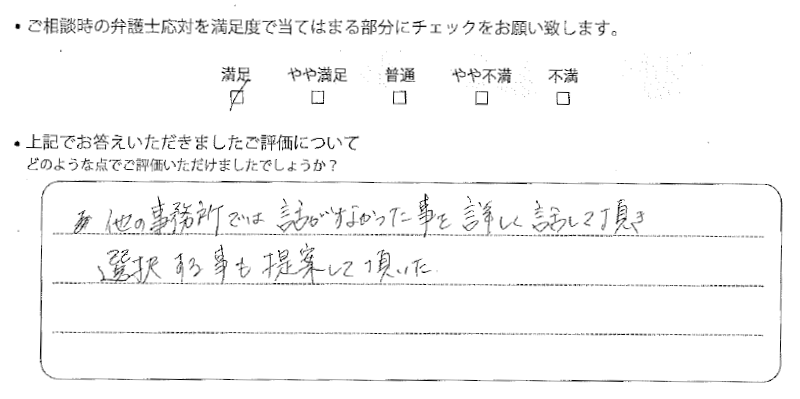 ・ご相談時の弁護士応対を満足度で当てはまる部分にチェックをお願い致します。
満足 やや満足 普通 やや不満 不満
・上記でお答えいただきましたご評価について
どのような点でご評価いただけましたでしょうか？
他の事務所では話がなかった事を詳しく話して頂き
選択する事も提案して頂いた